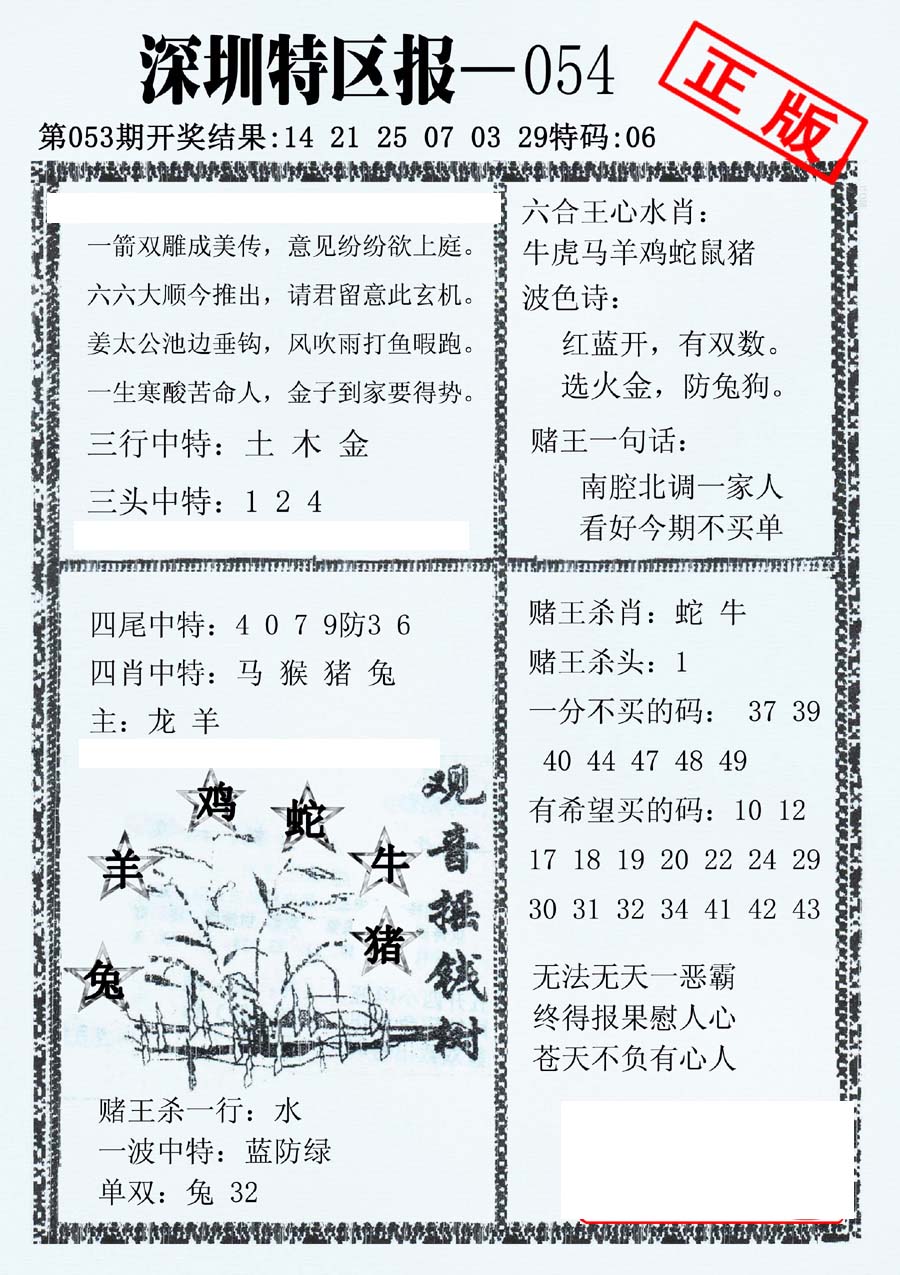 深圳特区报—054
正版
第053期开奖结果:14 21 25 07 03 29特码:06
一箭双雕成美传，意见纷纷欲上庭。
六六大顺今推出，请君留意此玄机。
姜太公池边垂钩，风吹雨打鱼暇跑。
一生寒酸苦命人，金子到家要得势。
三行中特：土 木 金
三头中特：1 2 4
六合王心水肖：
牛虎马羊鸡蛇鼠猪
波色诗：
红蓝开，有双数。
选火金，防兔狗。
赌王一句话：
南腔北调一家人
看好今期不买单
四尾中特：4 0 7 9防3 6
四肖中特：马 猴 猪 兔
主：龙 羊
观音摇钱树
鸡
蛇
羊
牛
猪
兔
赌王杀一行：水
一波中特：蓝防绿
单双：兔 32
赌王杀肖：蛇 牛
赌王杀头：1
一分不买的码： 37 39
40 44 47 48 49
有希望买的码：10 12
17 18 19 20 22 24 29
30 31 32 34 41 42 43
无法无天一恶霸
终得报果慰人心
苍天不负有心人